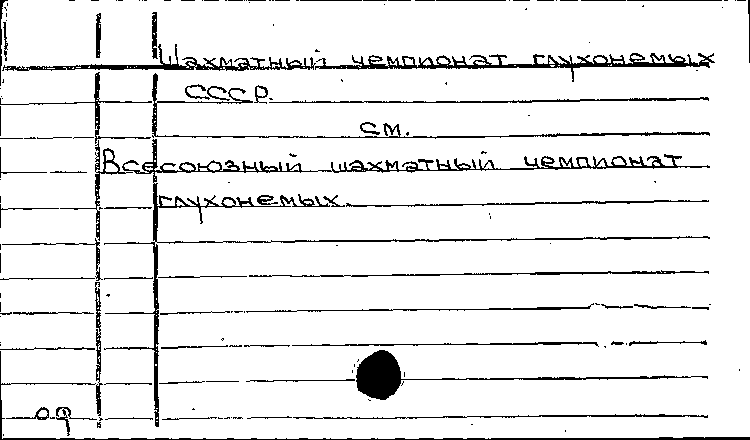 Шахматный чемпионат глухонемых
СССР.
см.
Всесоюзный шахматный чемпионат
глухонемых.